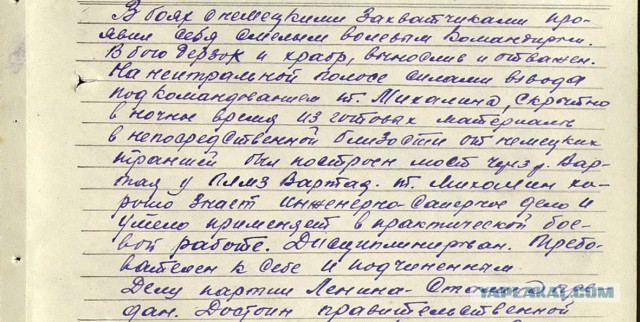 В боях с немецкими захватчиками про-
явил себя смелым волевым командиром.
В бою дерзок и храбр, вынослив и отважен.
На нейтральной полосе силами взвода
под командованием т. Михалина, скрытно
в ночное время из готовых материалов
в непосредственной близости от немецких
траншей был построен мост через р. Вар-
тая у П ЛМЗ Вартая. т. Михалин хо-
рошо знает инженерно-саперное дело и
умело применяет в практической бое-
вой работе. Дисциплинирован. Требо-
вателен к себе и подчиненным.
Делу партии Ленина-Сталина пре
дан. Достоин правительственной
YAPLAKAL.COM